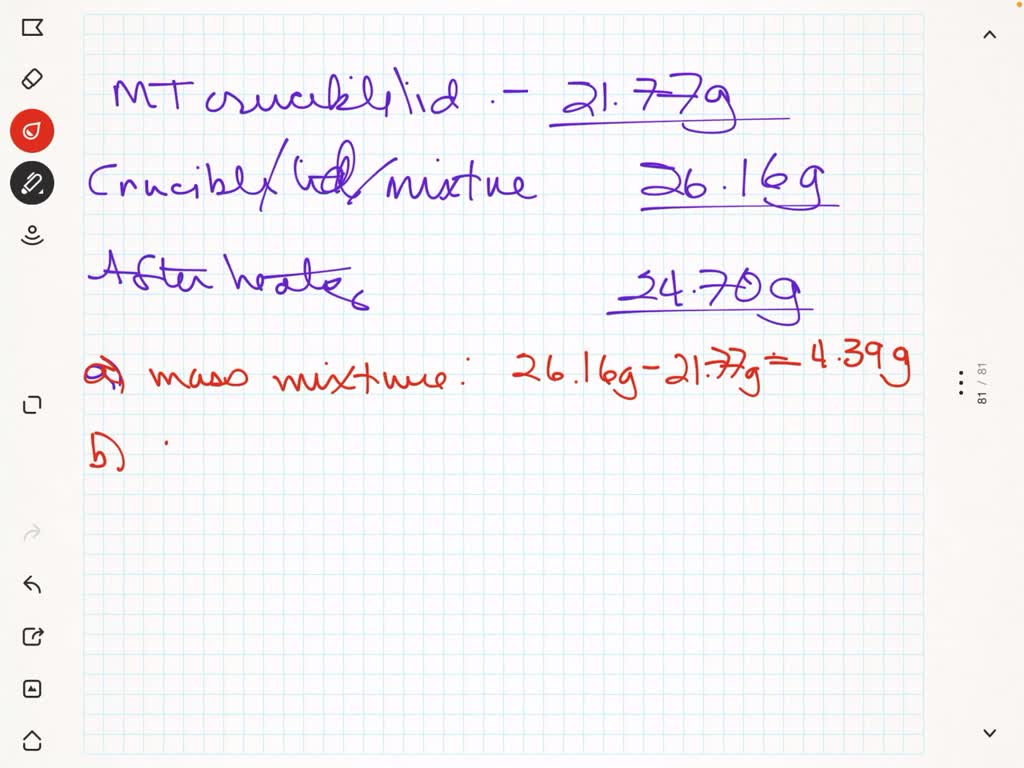 MT crucible/lid - 21.77g
Crucible/lid/mixture 26.16g
After heating 24.70g
a) mass mixture: 26.16g - 21.77g = 4.39g
b)
81 / 81